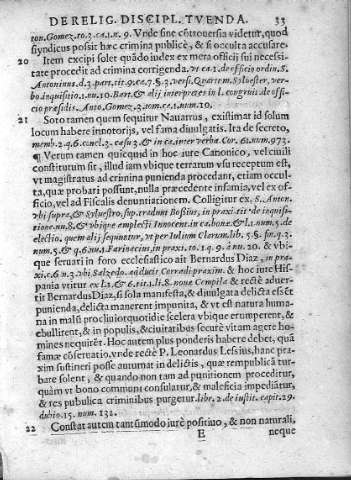 DE RELIG. DISCIPL. TVENDA. 33
ton. Gomez. to. 3. ca. 1. n. 9. Vnde sine cōtrouersia videtur, quod
syndicus possit hæc crimina publicè, & si occulta accusare.
20 Item excipi solet quādo iudex ex mera officij sui necessi-
tate procedit ad crimina corrigenda. vt ca. 1. de officio ordin. S.
Antoninus. d. 3. part. tit. 9. ca. 7. §. 3. vers. Quartum. Sylvester, ver-
bo. inquisitio. 1. nu. 10. Bart. & alij interpretes in l. congruit de offi-
cio præsidis. Anto. Gomez. 3. tom. ca. 1. num. 10.
21 Soto tamen quem sequitur Nauarrus, existimat id solum
locum habere in notorijs, vel fama diuulgatis. Ita de secreto,
memb. 2. q. 6. concl. 3. casu 3. & in ca. inter verba. Cor. 61. num. 973.
¶ Verum tamen quicquid in hoc iure Canonico, vel ciuili
constitutum sit, illud iam vbique terrarum vsu receptum est,
vt magistratus ad crimina punienda procedant, etiam occul-
ta, quæ probari possunt, nulla præcedente infamia, vel ex of-
ficio, vel ad Fiscalis denuntiationem. Colligitur ex. S. Anton.
vbi supra, & Syluestro, sup. tradunt Bossius, in praxi. tit. de inquisi-
tione. nu. 8. & vtique amplecti Innocent. in ca. bonæ. & l. 1. num. 5. de
electio. quem alij sequuntur, vt per Iulium Clarum. lib. 5. §. fin. q. 3.
num. 5. & q. 6. nu. 1. Farinacius, in praxi. to. 1. q. 9. à nu. 20. & vbi-
que seruari in foro ecclesiastico ait Bernardus Diaz, in pra-
xi. c. 6. n. 3. vbi Salzedo. adducit Corradi praxim. & hoc iure His-
pania vtitur ex l. 2. & 6. tit. 1. li. 8. nouæ Compila & rectè aduer-
tit Bernardus Diaz, si sola manifesta, & diuulgata delicta essēt
punienda, delicta manerent impunita, & vt est natura huma-
na in malū procliuior quotidie scelera vbique erumperent, &
ebullirent, & in populis, & ciuitatibus securè vitam agere ho-
mines nequirēt. Hoc autem plus ponderis habere debet, quā
famæ cōseruatio. vnde rectè P. Leonardus Lessius, hanc pra-
xim sustineri posse autumat in delictis, quæ rempublicā tur-
bare solent, & quando non tam ad punitionem proceditur,
quàm vt bono communi consulatur, & maleficia impediātur,
& res publica criminibus purgetur. libr. 2. de iustit. capit. 29.
dubio. 15. num. 132.
22 Constat autem tantùmodo iurè positiuo, & non naturali,
E neque